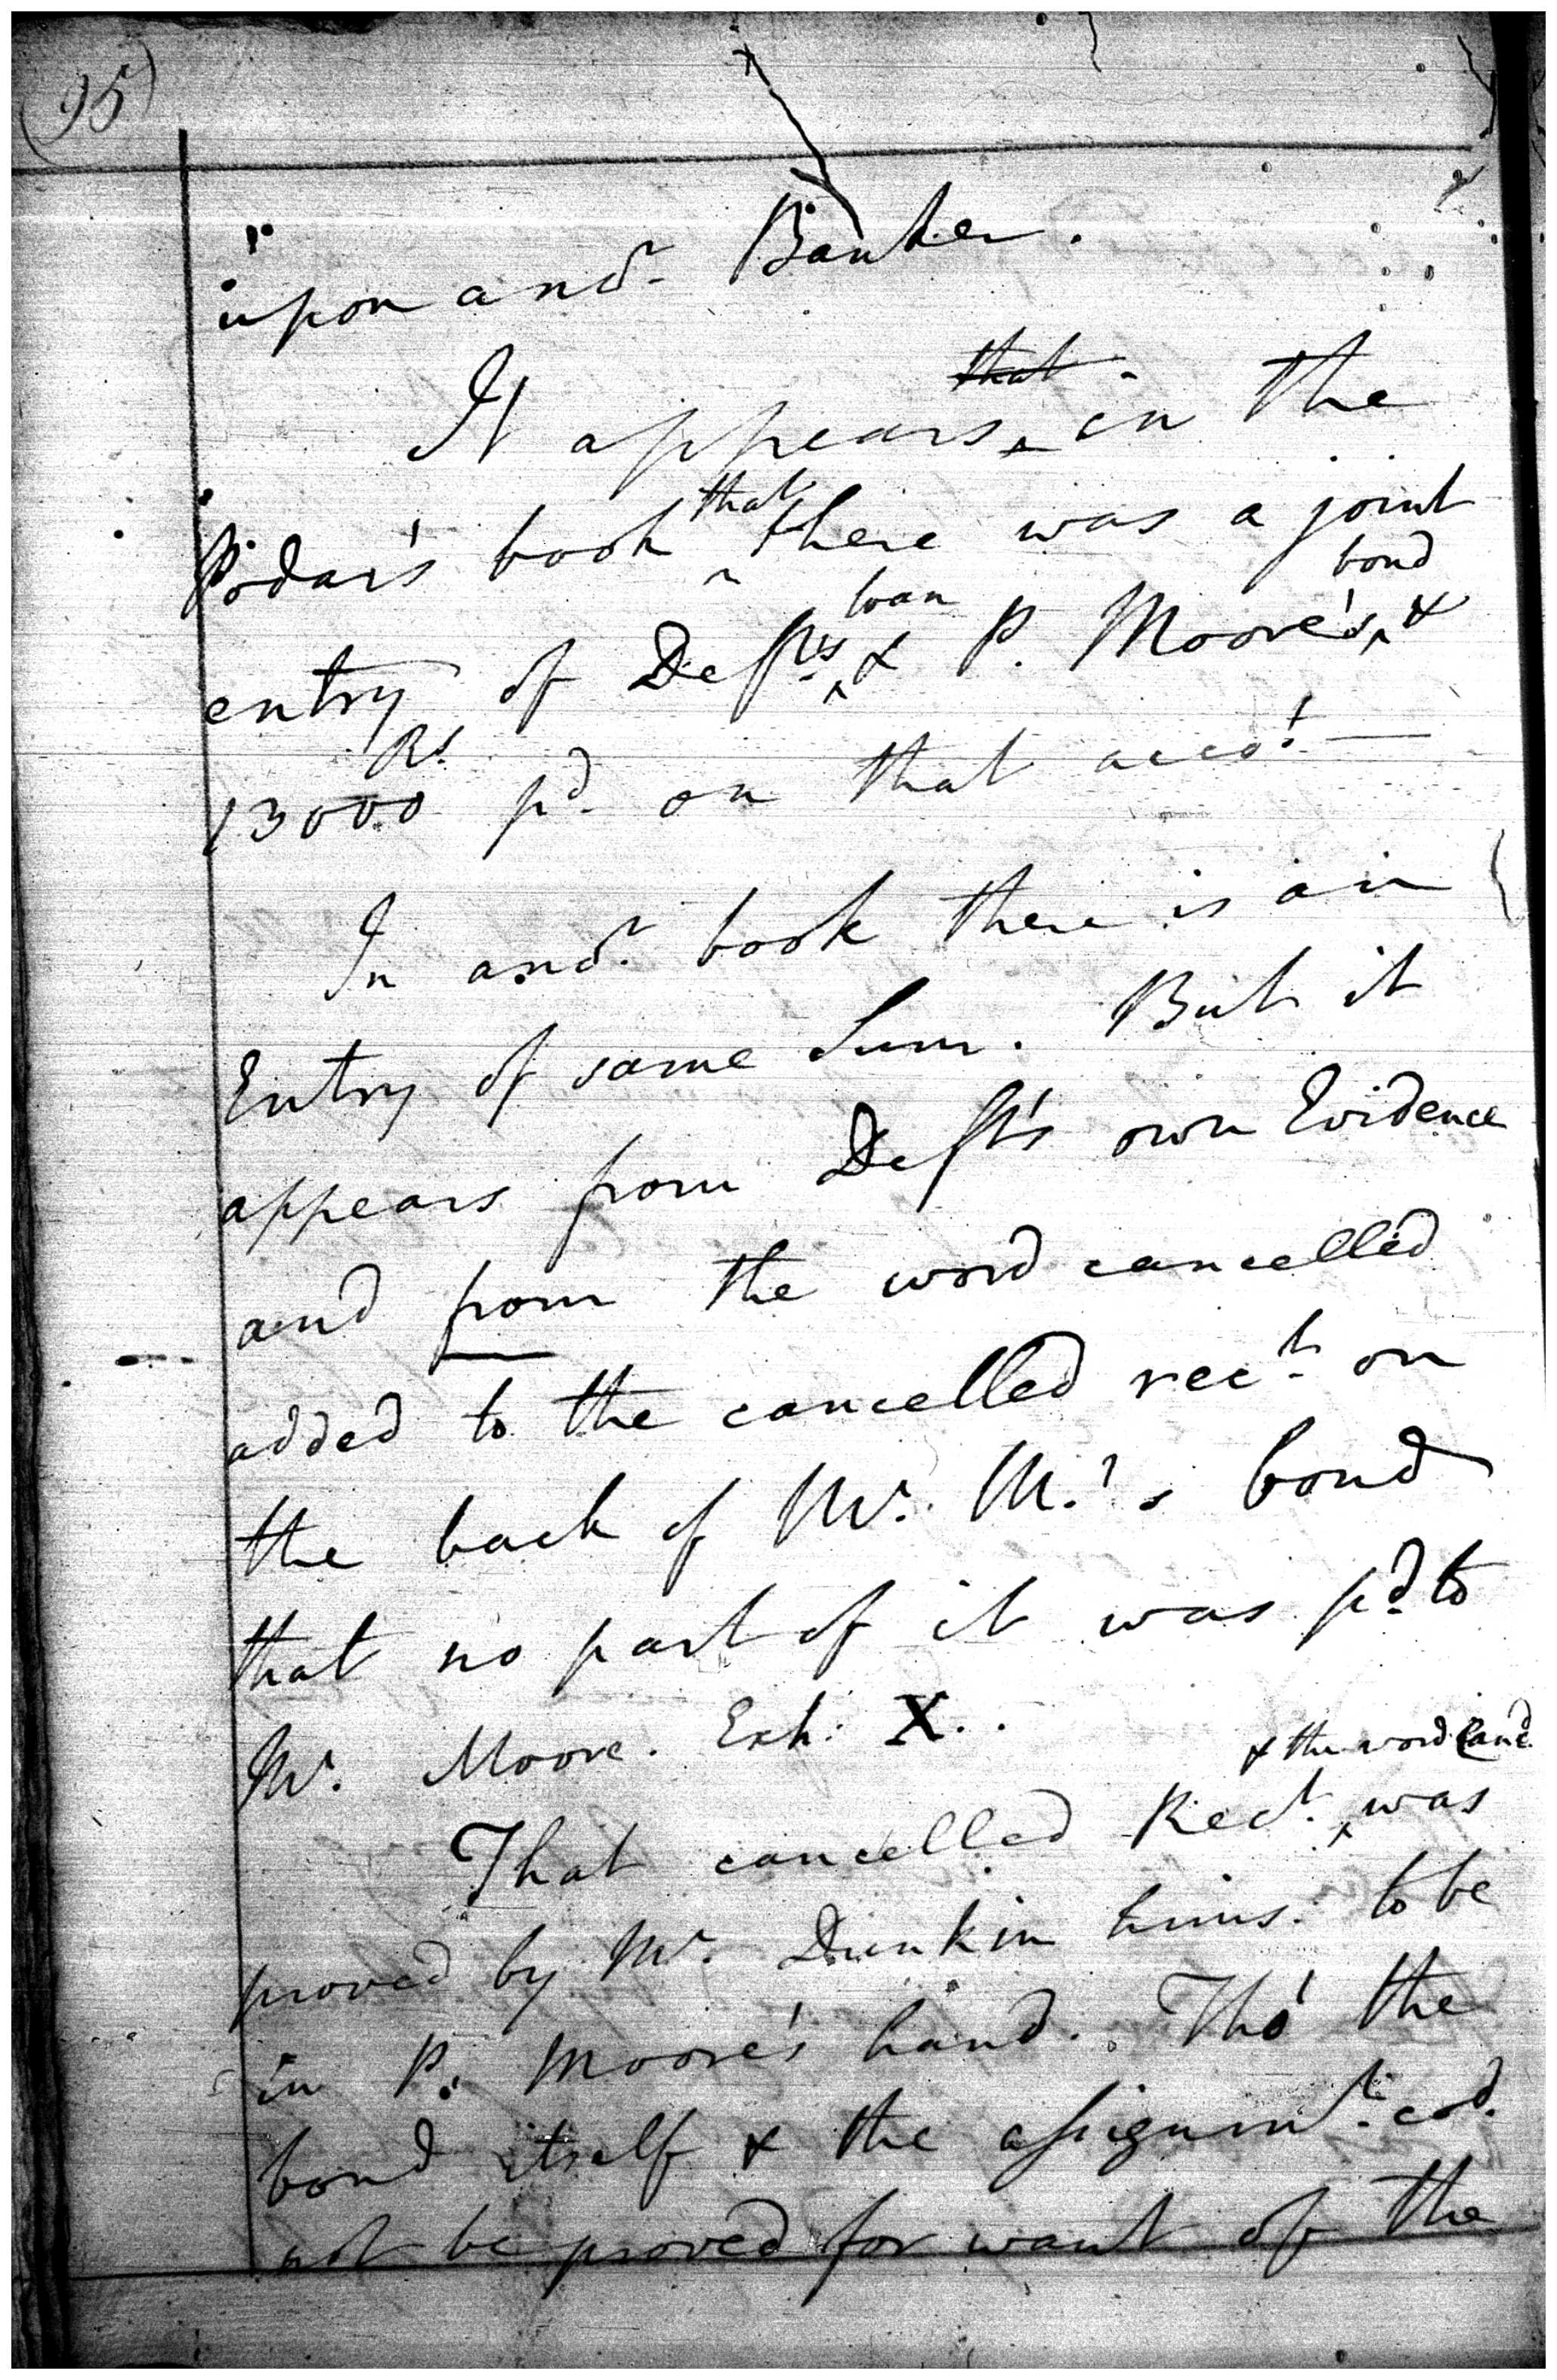 95
upon anor. Banker.
that
It appears in the
Podar's book that there was a joint
loan bond
entry of Deft's & P. Moore's &
Rs.
13000 pd. on that acco!
In anor. book there is an
Entry of same Sum. But it
appears from Deft's own Evidence
and from the word cancelled
added to the cancelled rect. on
the back of Mr. M.'s bond
that no part of it was pd. to
Mr. Moore. Exh: X..
& the word Cancd.
That cancelled Rect. was
proved by Mr. Dunkin hims. to be
in P. Moore's hand. Tho' the
bond itself & the assignmt. cod.
not be proved for want of the